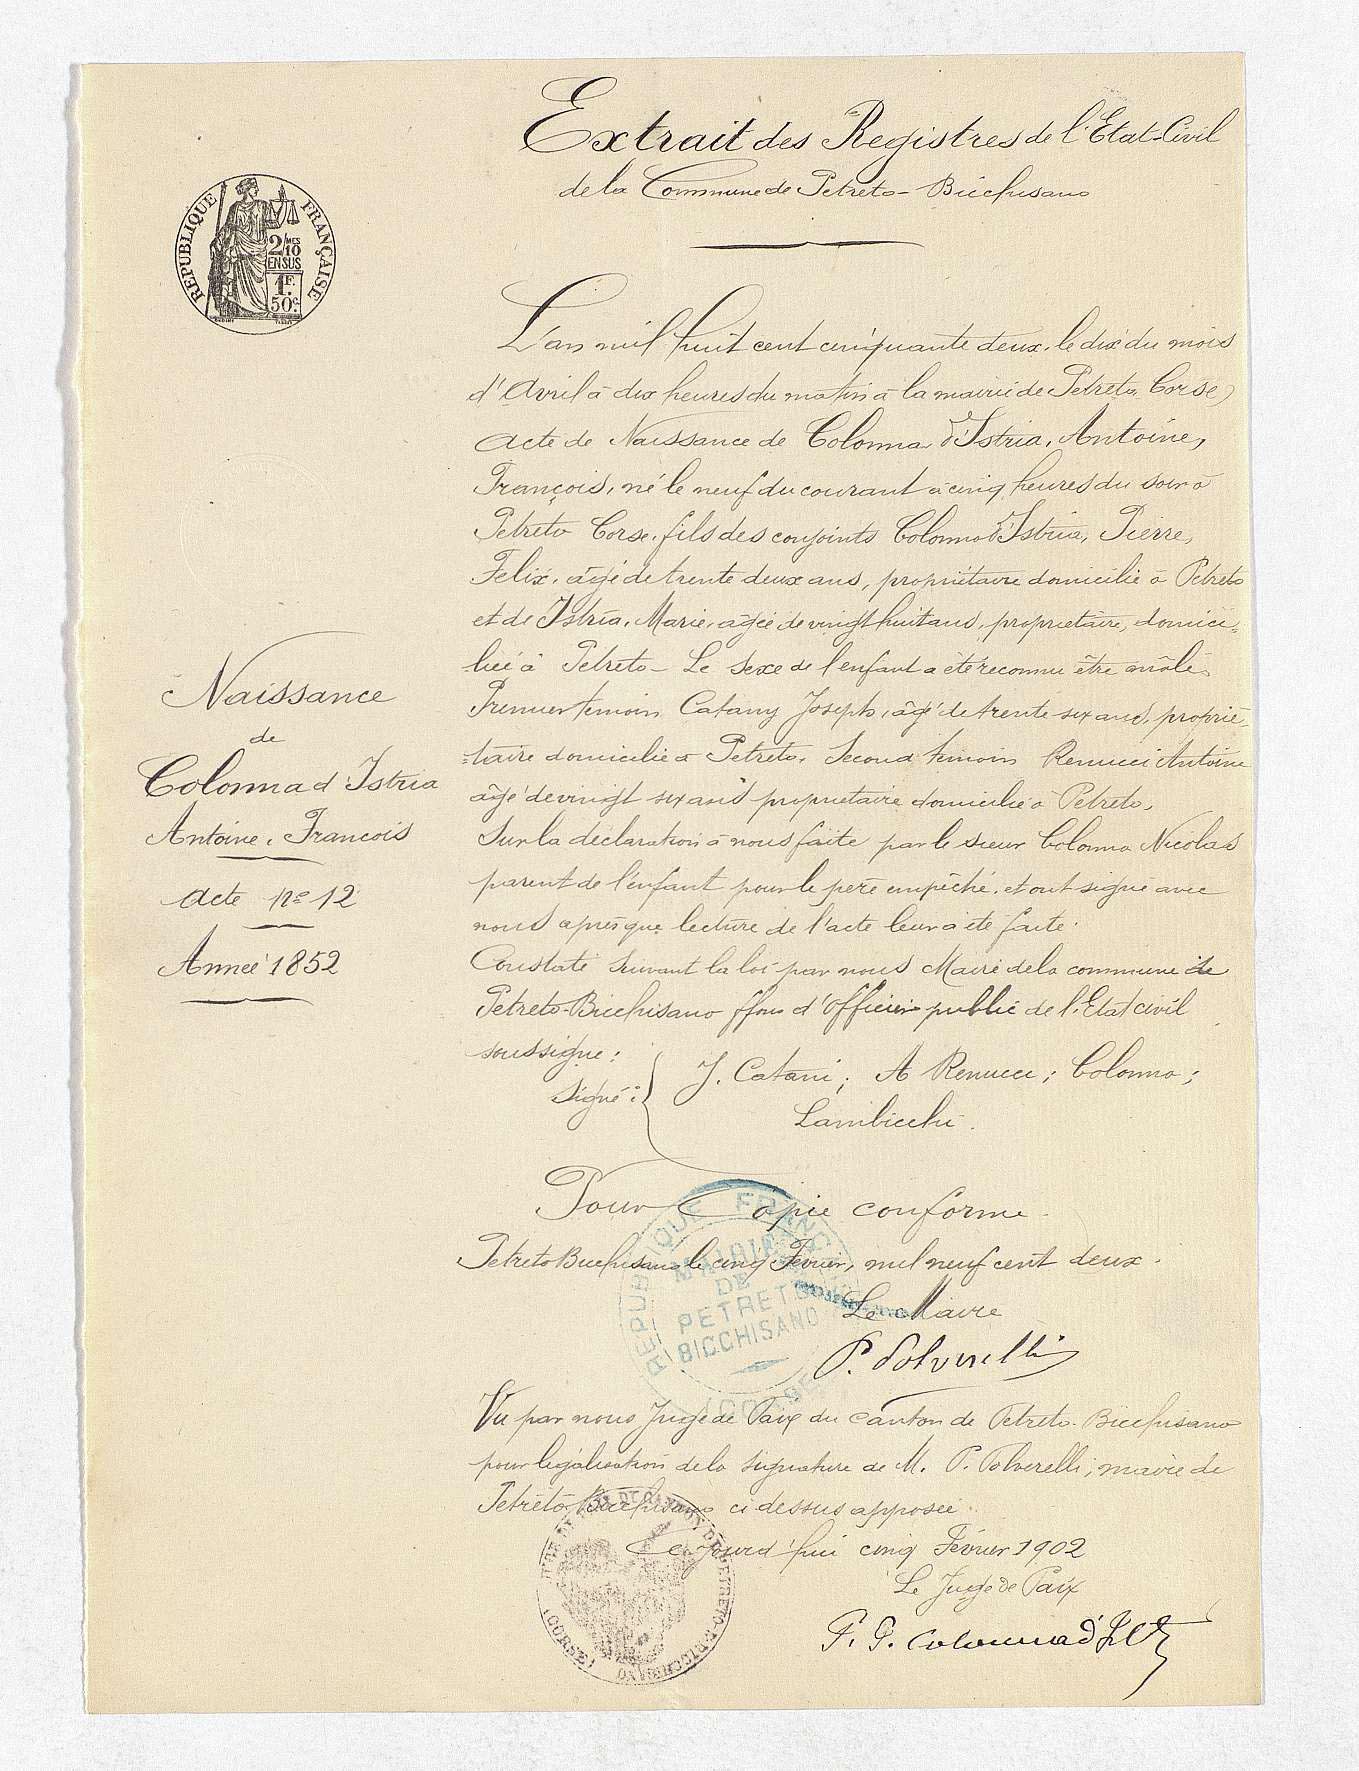 Extrait des Registres de l'Etat-Civil
de la Commune de Petreto-Bicchisano
REPUBLIQUE FRANÇAISE
2/10 MES
EN SUS
1F.
50c.
L'an mil huit cent cinquante deux, le dix du mois
d'Avril à dix heures du matin à la mairie de Petreto Corse,
acte de Naissance de Colonna d'Istria, Antoine,
François, né le neuf du courant à cinq heures du soir à
Petreto Corse, fils des conjoints Colonna d'Istria, Pierre,
Felix, âgé de trente deux ans, propriétaire domicilié à Petreto
et de Istria, Marie, agée de vingt huit ans, propriétaire, domici-
liée à Petreto - Le sexe de l'enfant a été reconnu être mâle.
Premier témoin Catany Joseph, âgé de trente-six ans, proprié-
-taire domicilié à Petreto, Second temoin Renucci Antoine
âgé de vingt six ans propriétaire domicilié à Petreto,
Sur la déclaration à nous faite par le sieur Colonna Nicolas
parent de l'enfant pour le père empêché, et ont signé avec
nous après que lecture de l'acte leur a été faite.
Constaté suivant la loi par nous Maire de la commune de
Petreto-Bicchisano ffons d'officier public de l'Etat civil
soussigné:
Signé: J. Catani; A Renucci; Colonna;
Lambicchi.
Naissance
de
Colonna d'Istria
Antoine, Francois
acte no 12
Année 1852
Pour Copie conforme.
Petreto Bicchisano le cinq Février, mil neuf cent deux.
Le Maire
P. Polverelli
REPUBLIQUE FRANÇAISE
MAIRIE
DE
PETRETO
BICCHISANO
(CORSE)
Vu par nous Juge de Paix du canton de Petreto-Bicchisano
pour légalisation de la signature de M. P. Polverelli, maire de
Petreto-Bicchisano ci dessus apposée.
Cejourd'hui cinq Février 1902
Le Juge de Paix
P. P. Colonna d'Istria
DE PAIX DU CANTON DE PETRETO-BICCHISANO
(CORSE)